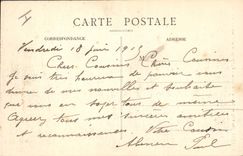 CARTE POSTALE
CORRESPONDANCE ADRESSE
Vendredi 18 juin 1915
Chers Cousins Chères Cousines
Je suis très heureux de pouvoir vous
donner de mes nouvelles et souhaite
que vous en soyez tous de même
Agréez tous mes sincères amitiés
et reconnaissances Votre Cousin